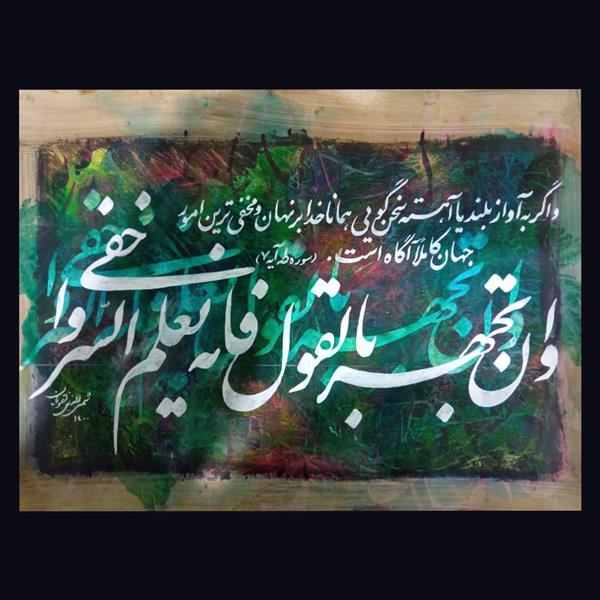 و اگر به آواز بلند یا آهسته سخن گویی همانا خدا بر نهان و مخفی ترین امور
جهان کاملاً آگاه است. (سوره طه آیه ۷)
وان تجهر بالقول فانه یعلم السر و اخفی
۱۴۰۰